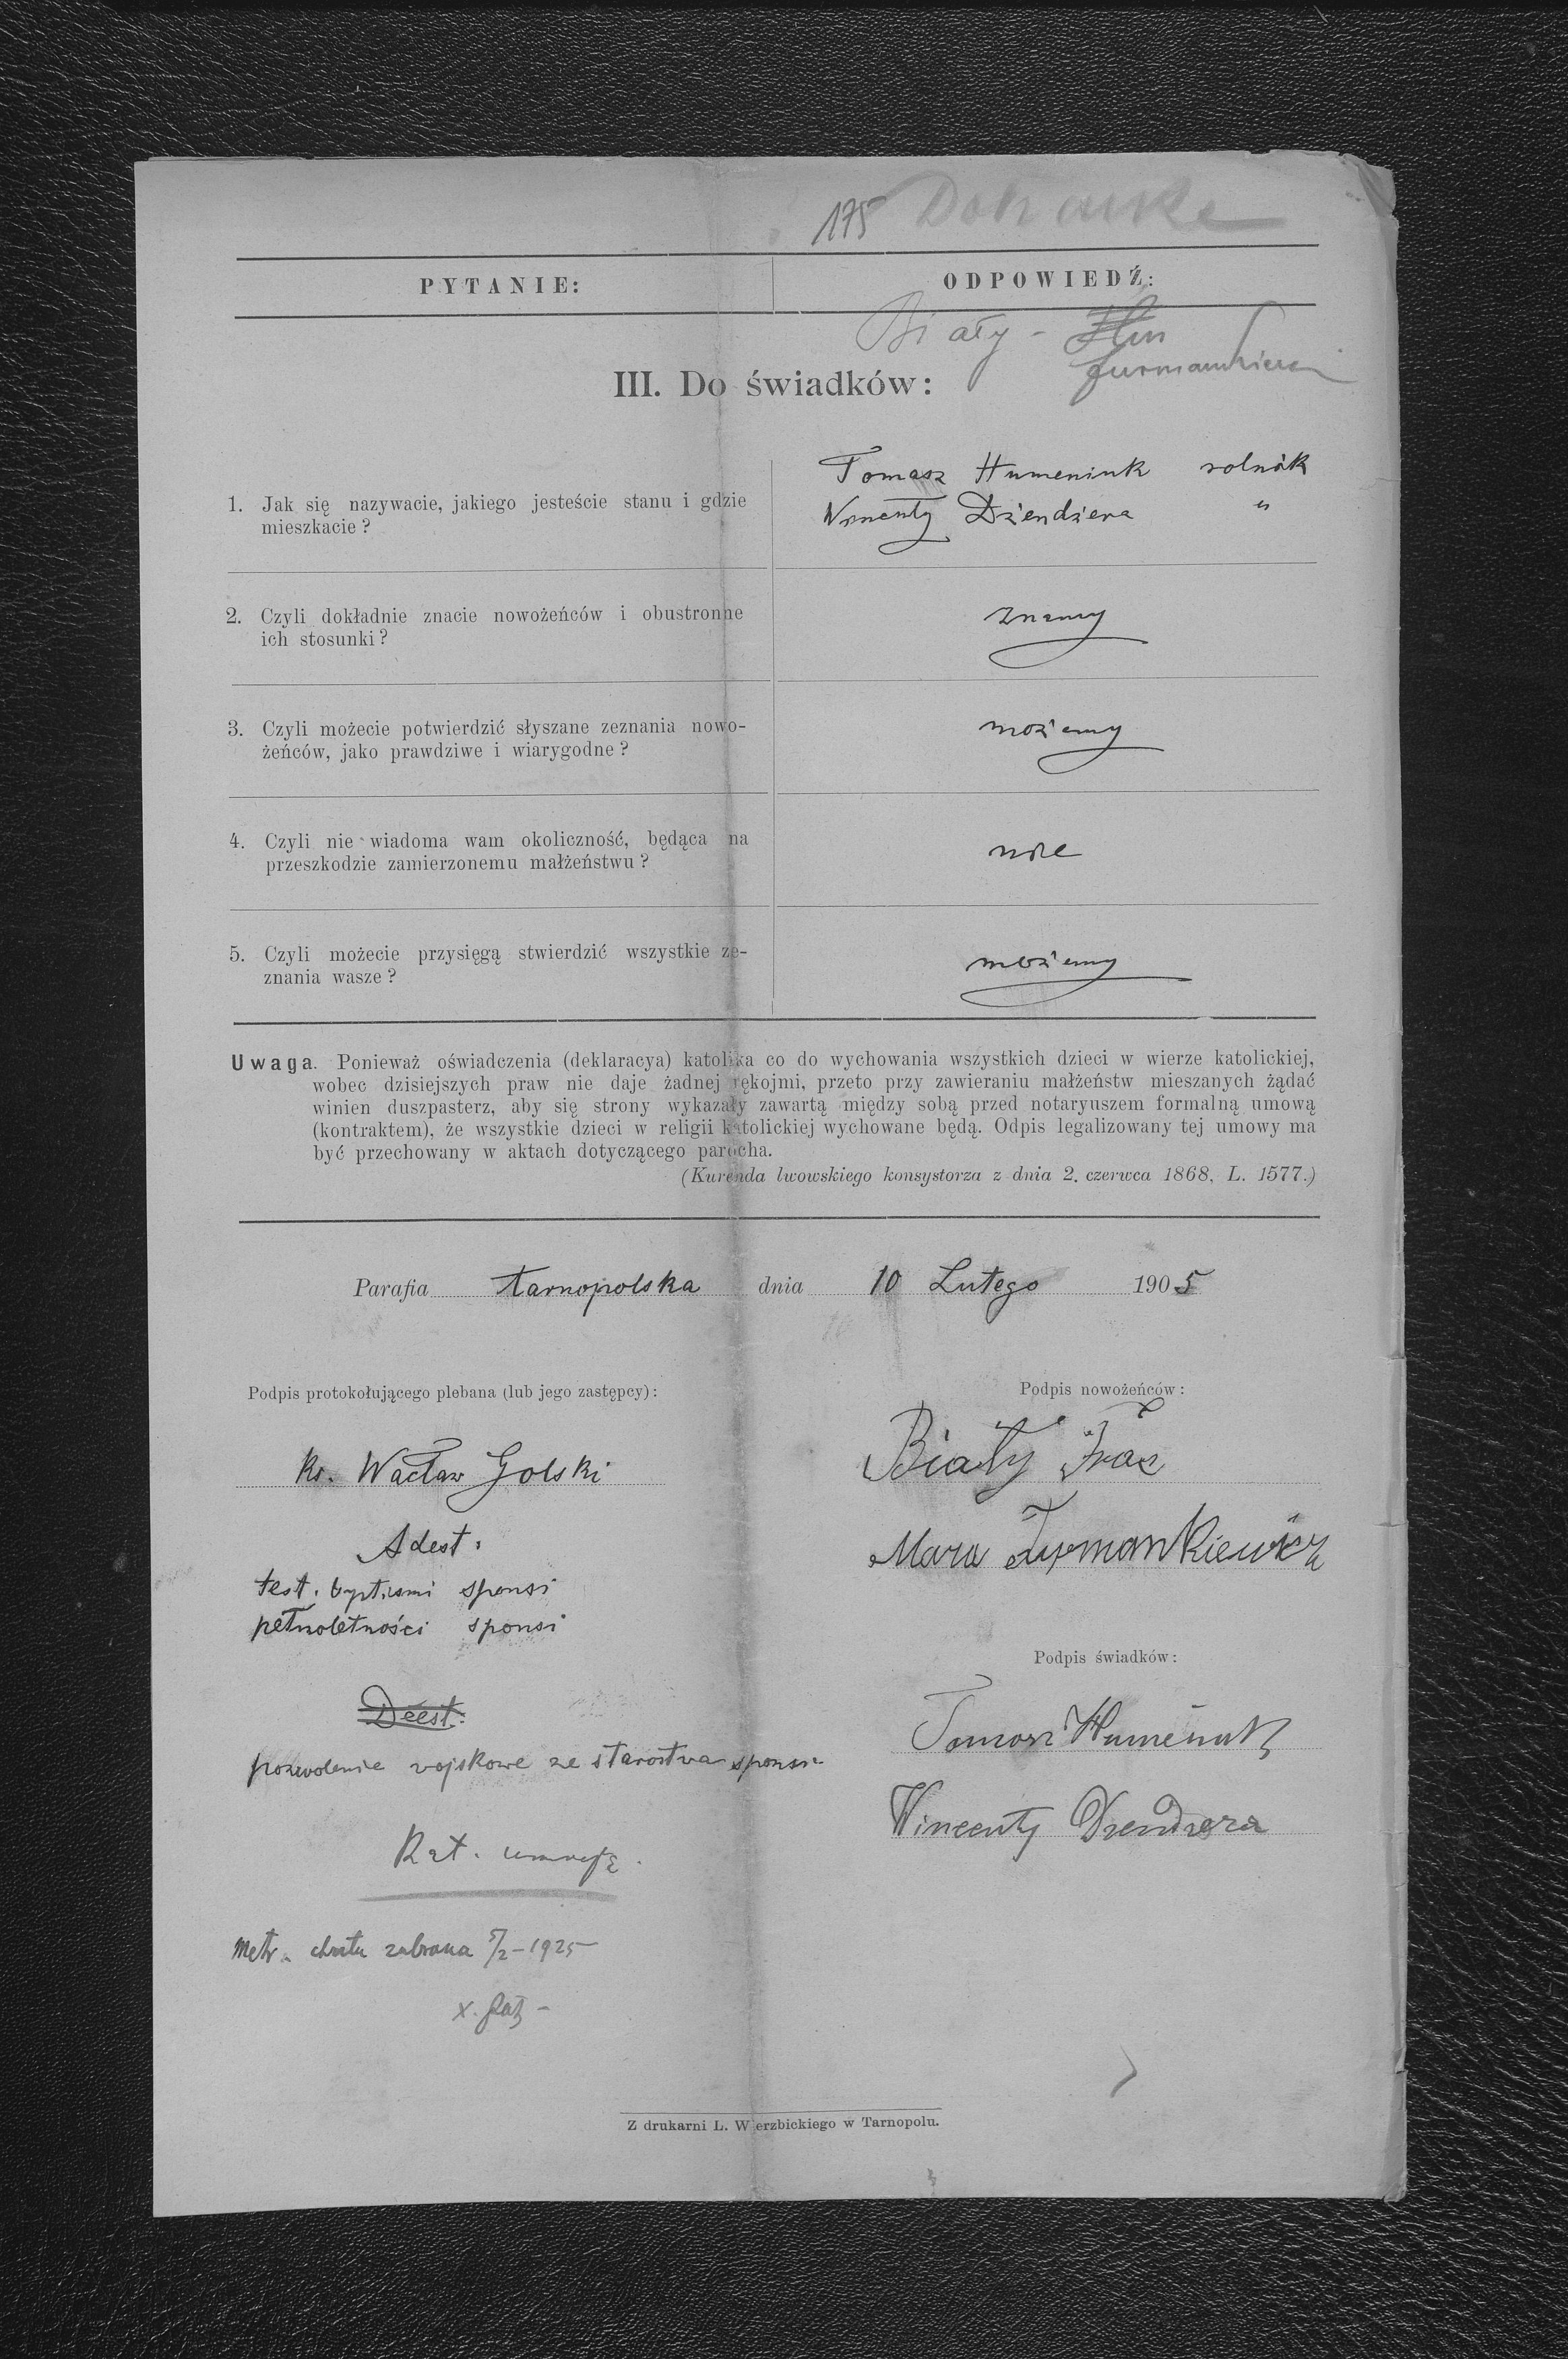 175
PYTANIE: ODPOWIEDŹ:
Biały -
III. Do świadków:
1. Jak się nazywacie, jakiego jesteście stanu i gdzie
mieszkacie?
Tomasz Humeniuk rolnik
Wincenty Dziendziera "
2. Czyli dokładnie znacie nowożeńców i obustronne
ich stosunki?
znamy
3. Czyli możecie potwierdzić słyszane zeznania nowo-
żeńców, jako prawdziwe i wiarygodne?
możemy
4. Czyli nie wiadoma wam okoliczność, będąca na
przeszkodzie zamierzonemu małżeństwu?
nie
5. Czyli możecie przysięgą stwierdzić wszystkie ze-
znania wasze?
możemy
Uwaga. Ponieważ oświadczenia (deklaracya) katolika co do wychowania wszystkich dzieci w wierze katolickiej,
wobec dzisiejszych praw nie daje żadnej rękojmi, przeto przy zawieraniu małżeństw mieszanych żądać
winien duszpasterz, aby się strony wykazały zawartą między sobą przed notaryuszem formalną umową
(kontraktem), że wszystkie dzieci w religii katolickiej wychowane będą. Odpis legalizowany tej umowy ma
być przechowany w aktach dotyczącego parocha.
(Kurenda lwowskiego konsystorza z dnia 2. czerwca 1868, L. 1577.)
Parafia tarnopolska dnia 10 Lutego 1905
Podpis protokołującego plebana (lub jego zastępcy):
Ks. Wacław Golski
Adest:
test. baptismi sponsi
pełnoletności sponsi
Deest:
pozwolenie wojskowe ze starostwa sponsi
Podpis nowożeńców:
Biały
Podpis świadków:
Tomasz Humeniuk
Wincenty Dziendziera
Metr. chrztu zabrana 5/2-1925
Z drukarni L. Wierzbickiego w Tarnopolu.